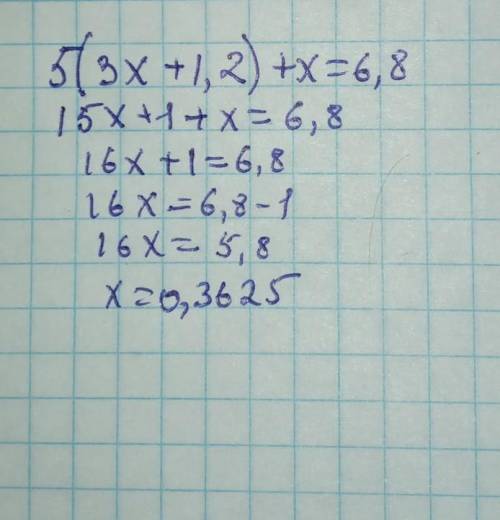 5(3x+1,2)+x=6,8
15x+1+x=6,8
16x+1=6,8
16x=6,8-1
16x=5,8
x=0,3625